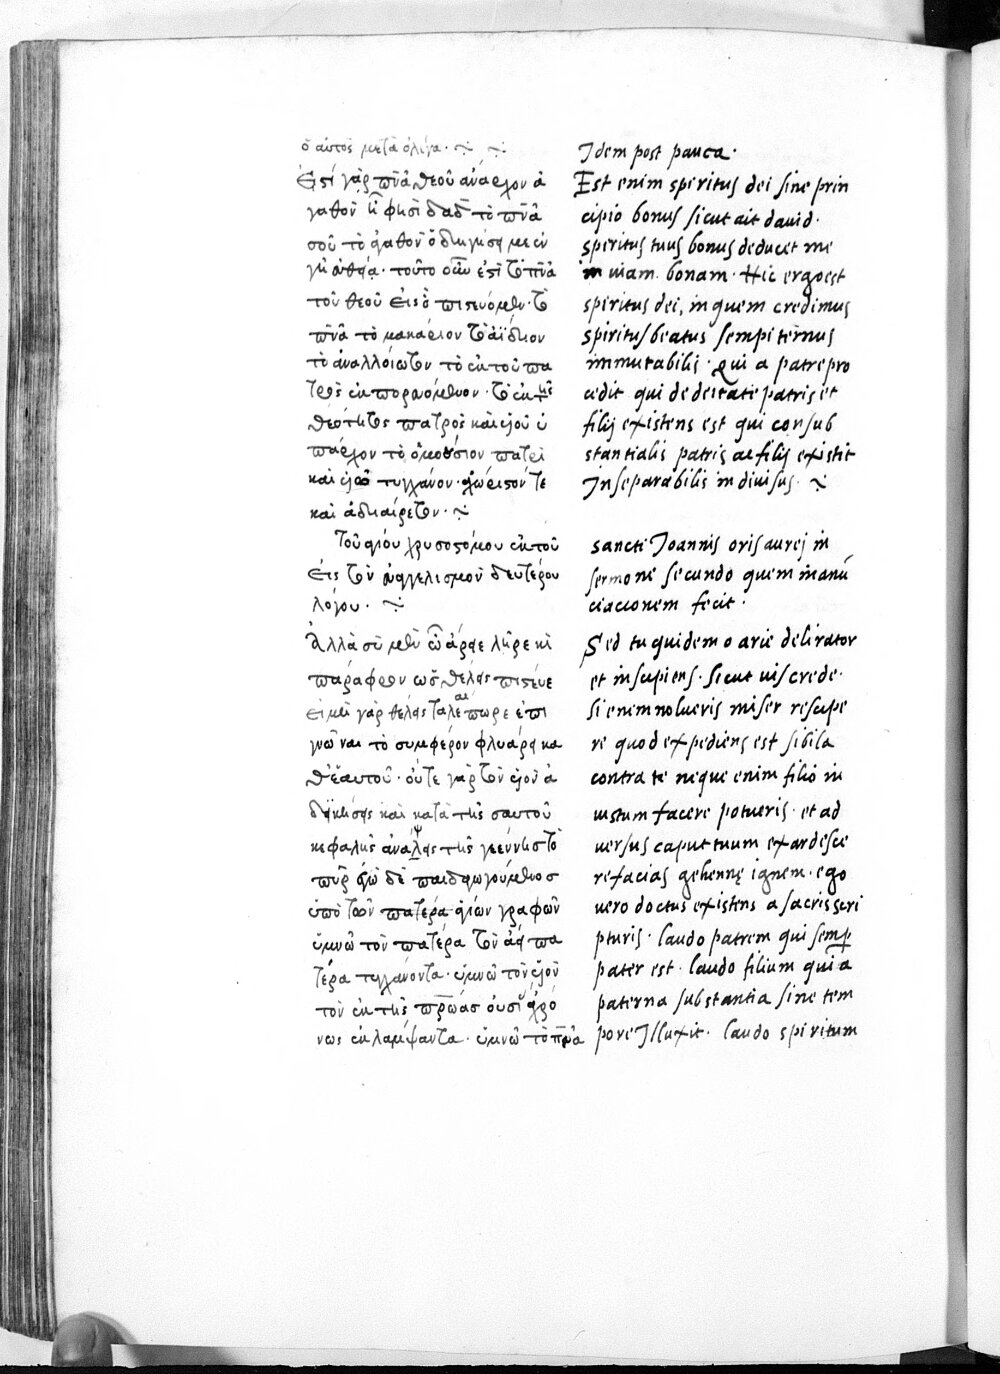 ὁ αὐτὸς μετὰ ὀλίγα·
Ἐστὶ γὰρ πνα θεοῦ ἄναρχον ἀ
γαθὸν φησὶ δαδ τὸ πνα
σου τὸ ἀγαθὸν ὁδηγήσει με ἐν
γῆ εὐθεία· τοῦτο οὖν ἐστὶ τὸ πνα
τοῦ θεοῦ εἰς ὃ πιστεύομεν· τὸ
πνα τὸ μακάριον τὸ ἀΐδιον
τὸ ἀναλλοίωτον τὸ ἐκ τοῦ πα
τρὸς ἐκπορευόμενον· τὸ ἐκ τῆς
θεότητος πατρὸς καὶ υἱοῦ ὑ
πάρχον τὸ ὁμοούσιον πατρὶ
καὶ υἱῷ τυγχάνον· ἀχώριστόν τε
καὶ ἀδιαίρετον·
Τοῦ ἁγίου χρυσοστόμου ἐκ τοῦ
εἰς τὸν εὐαγγελισμὸν δευτέρου
λόγου·
Ἀλλὰ σὺ μὲν ὦ ἄρειε λῆρε καὶ
παράφρον ὡς θέλεις πίστευε
εἰ μὴ γὰρ θέλεις ταλαίπωρε ἐπι
γνῶναι τὸ συμφέρον φλυάρει κα
θ' ἑαυτοῦ· οὔτε γὰρ τὸν υἱὸν ἀ
δικήσεις καὶ κατὰ τῆς σαυτοῦ
κεφαλῆς ἀνάψεις τῆς γεέννης τὸ
πῦρ ἐγὼ δὲ παιδαγωγούμενος
ὑπὸ τῶν πατέρα ἁγίων γραφῶν
ὑμνῶ τὸν πατέρα τὸν ἀεὶ πα
τέρα τυγχάνοντα· ὑμνῶ τὸν υἱὸν
τὸν ἐκ τῆς πρώας οὐσίας ἀχρό
νως ἐκλάμψαντα· ὑμνῶ τὸ πνα
Idem post pauca·
Est enim spiritus dei sine prin
cipio bonus sicut ait david·
spiritus tuus bonus deducet me
in viam bonam· Hic ergo est
spiritus dei, in quem credimus
spiritus beatus sempiternus
immutabilis· qui a patre pro
cedit qui de deitate patris et
filij existens est qui consub
stantialis patris ac filij existit
Inseparabilis indivisus·
sancti Joannis oris aurej in
sermone secundo quem in anū
ciacionem fecit·
Sed tu quidem o arie delirator
et insipiens· sicut vis crede·
si enim nolueris miser rescipe
re quod expediens est sibila
contra te neque enim filio in
iustum facere potueris· et ad
versus caput tuum exardesce
re facias gehennę ignem· ego
vero doctus existens a sacris scri
pturis· laudo patrem qui semp
pater est· laudo filium qui a
paterna substantia sine tem
pore Illuxit· laudo spiritum